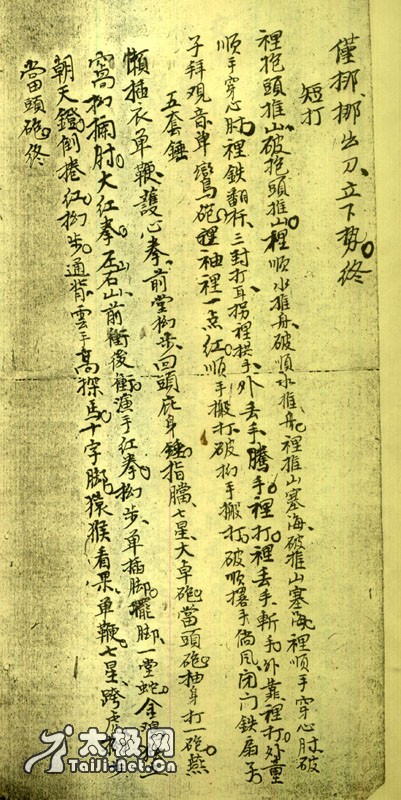 僅挪、挪出刀、立下勢。終
短打
裡抱頭推山、破抱頭推山、裡順水推舟、破順水推舟、裡推山塞海、破推山塞海、裡順手穿心肘、破
順手穿心肘、裡鉄翻杆、三封打耳拐裡拱手、外丢手、騰手裡打、裡丢手、斬手外靠裡打、外童
子拜观音、单鸞砲、裡袖裡一点红、順手搬打、破拗手搬打、破順撂手倘風、闭门鉄扇子
五套錘
懶插衣、单鞭、護心拳、前堂拗步、回頭庇身錘、指膛、七星、大卓砲、當頭砲、抽身打一砲、燕
窩、拗攔肘、大红拳、左右山、前衝後衝、演手红拳、拗步、单插脚、擺脚、一堂蛇、金鸡
朝天鐙、倒捲红、拗步、通背、雲手、高探馬、十字脚、猿猴看果、单鞭、七星、跨虎
當頭砲。終
太极网
Taiji.net.cn